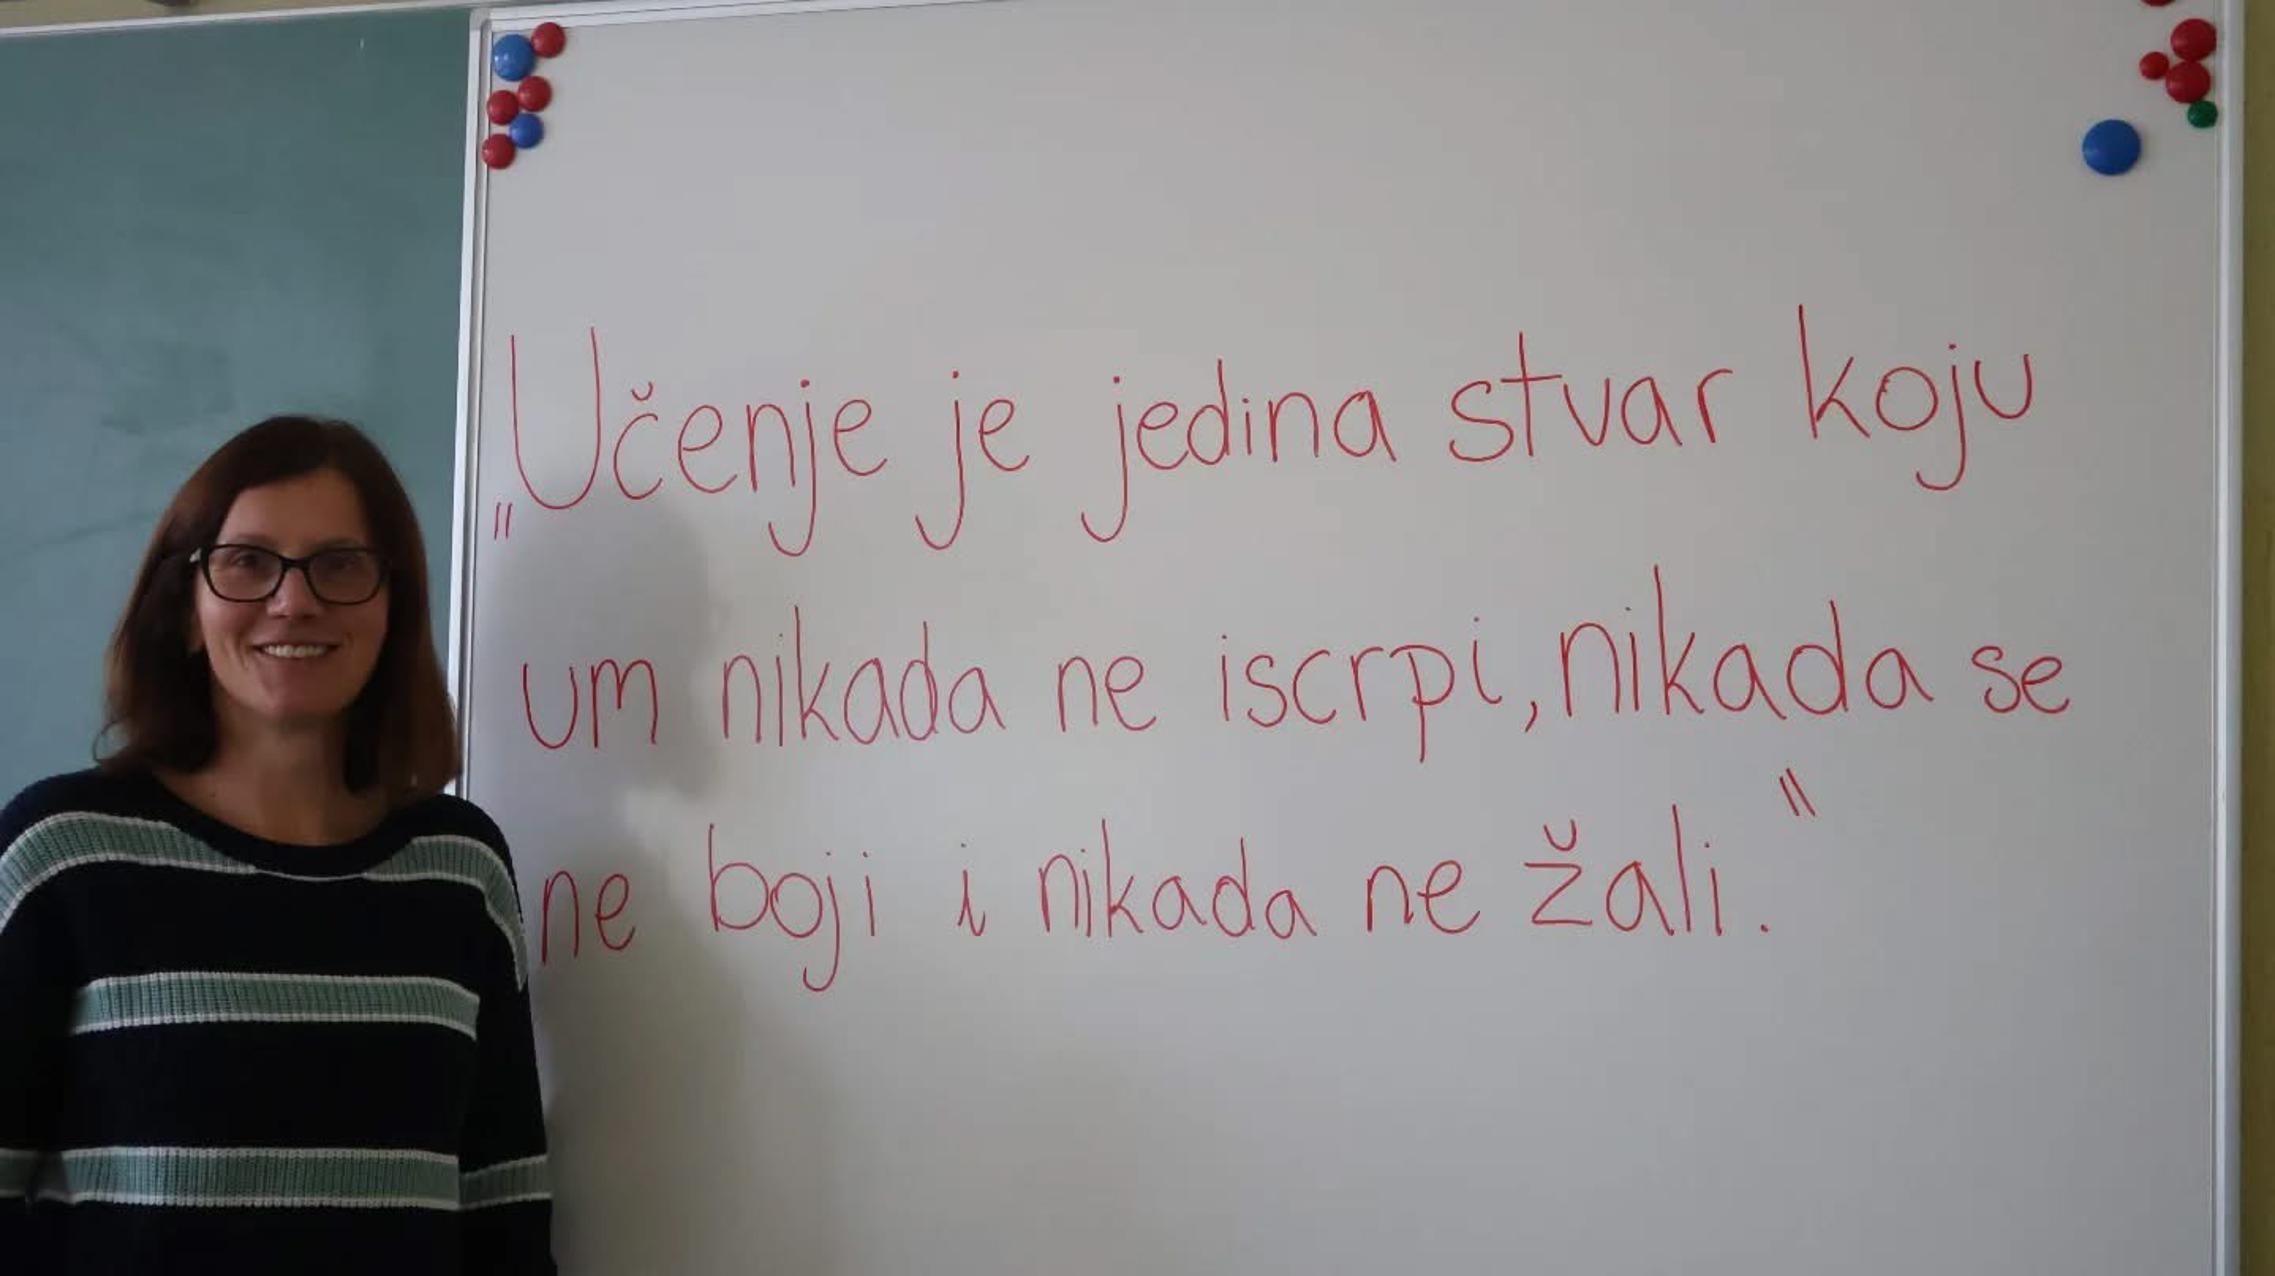 „Učenje je jedina stvar koju
um nikada ne iscrpi, nikada se
ne boji i nikada ne žali."